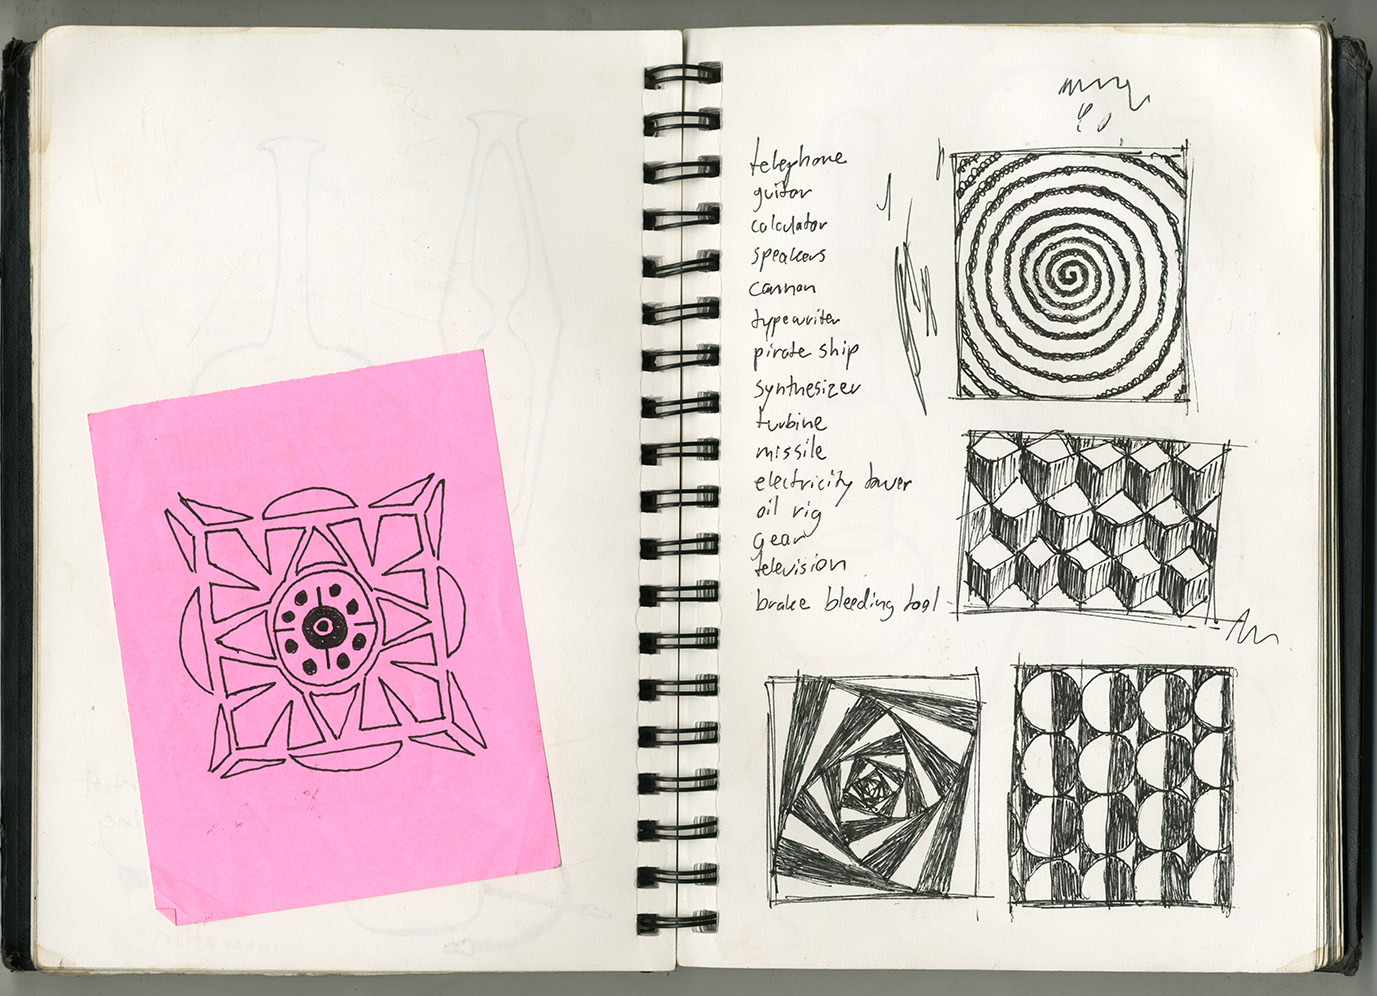 telephone
guitar
calculator
speakers
cannon
typewriter
pirate ship
synthesizer
turbine
missile
electricity tower
oil rig
gear
television
brake bleeding tool